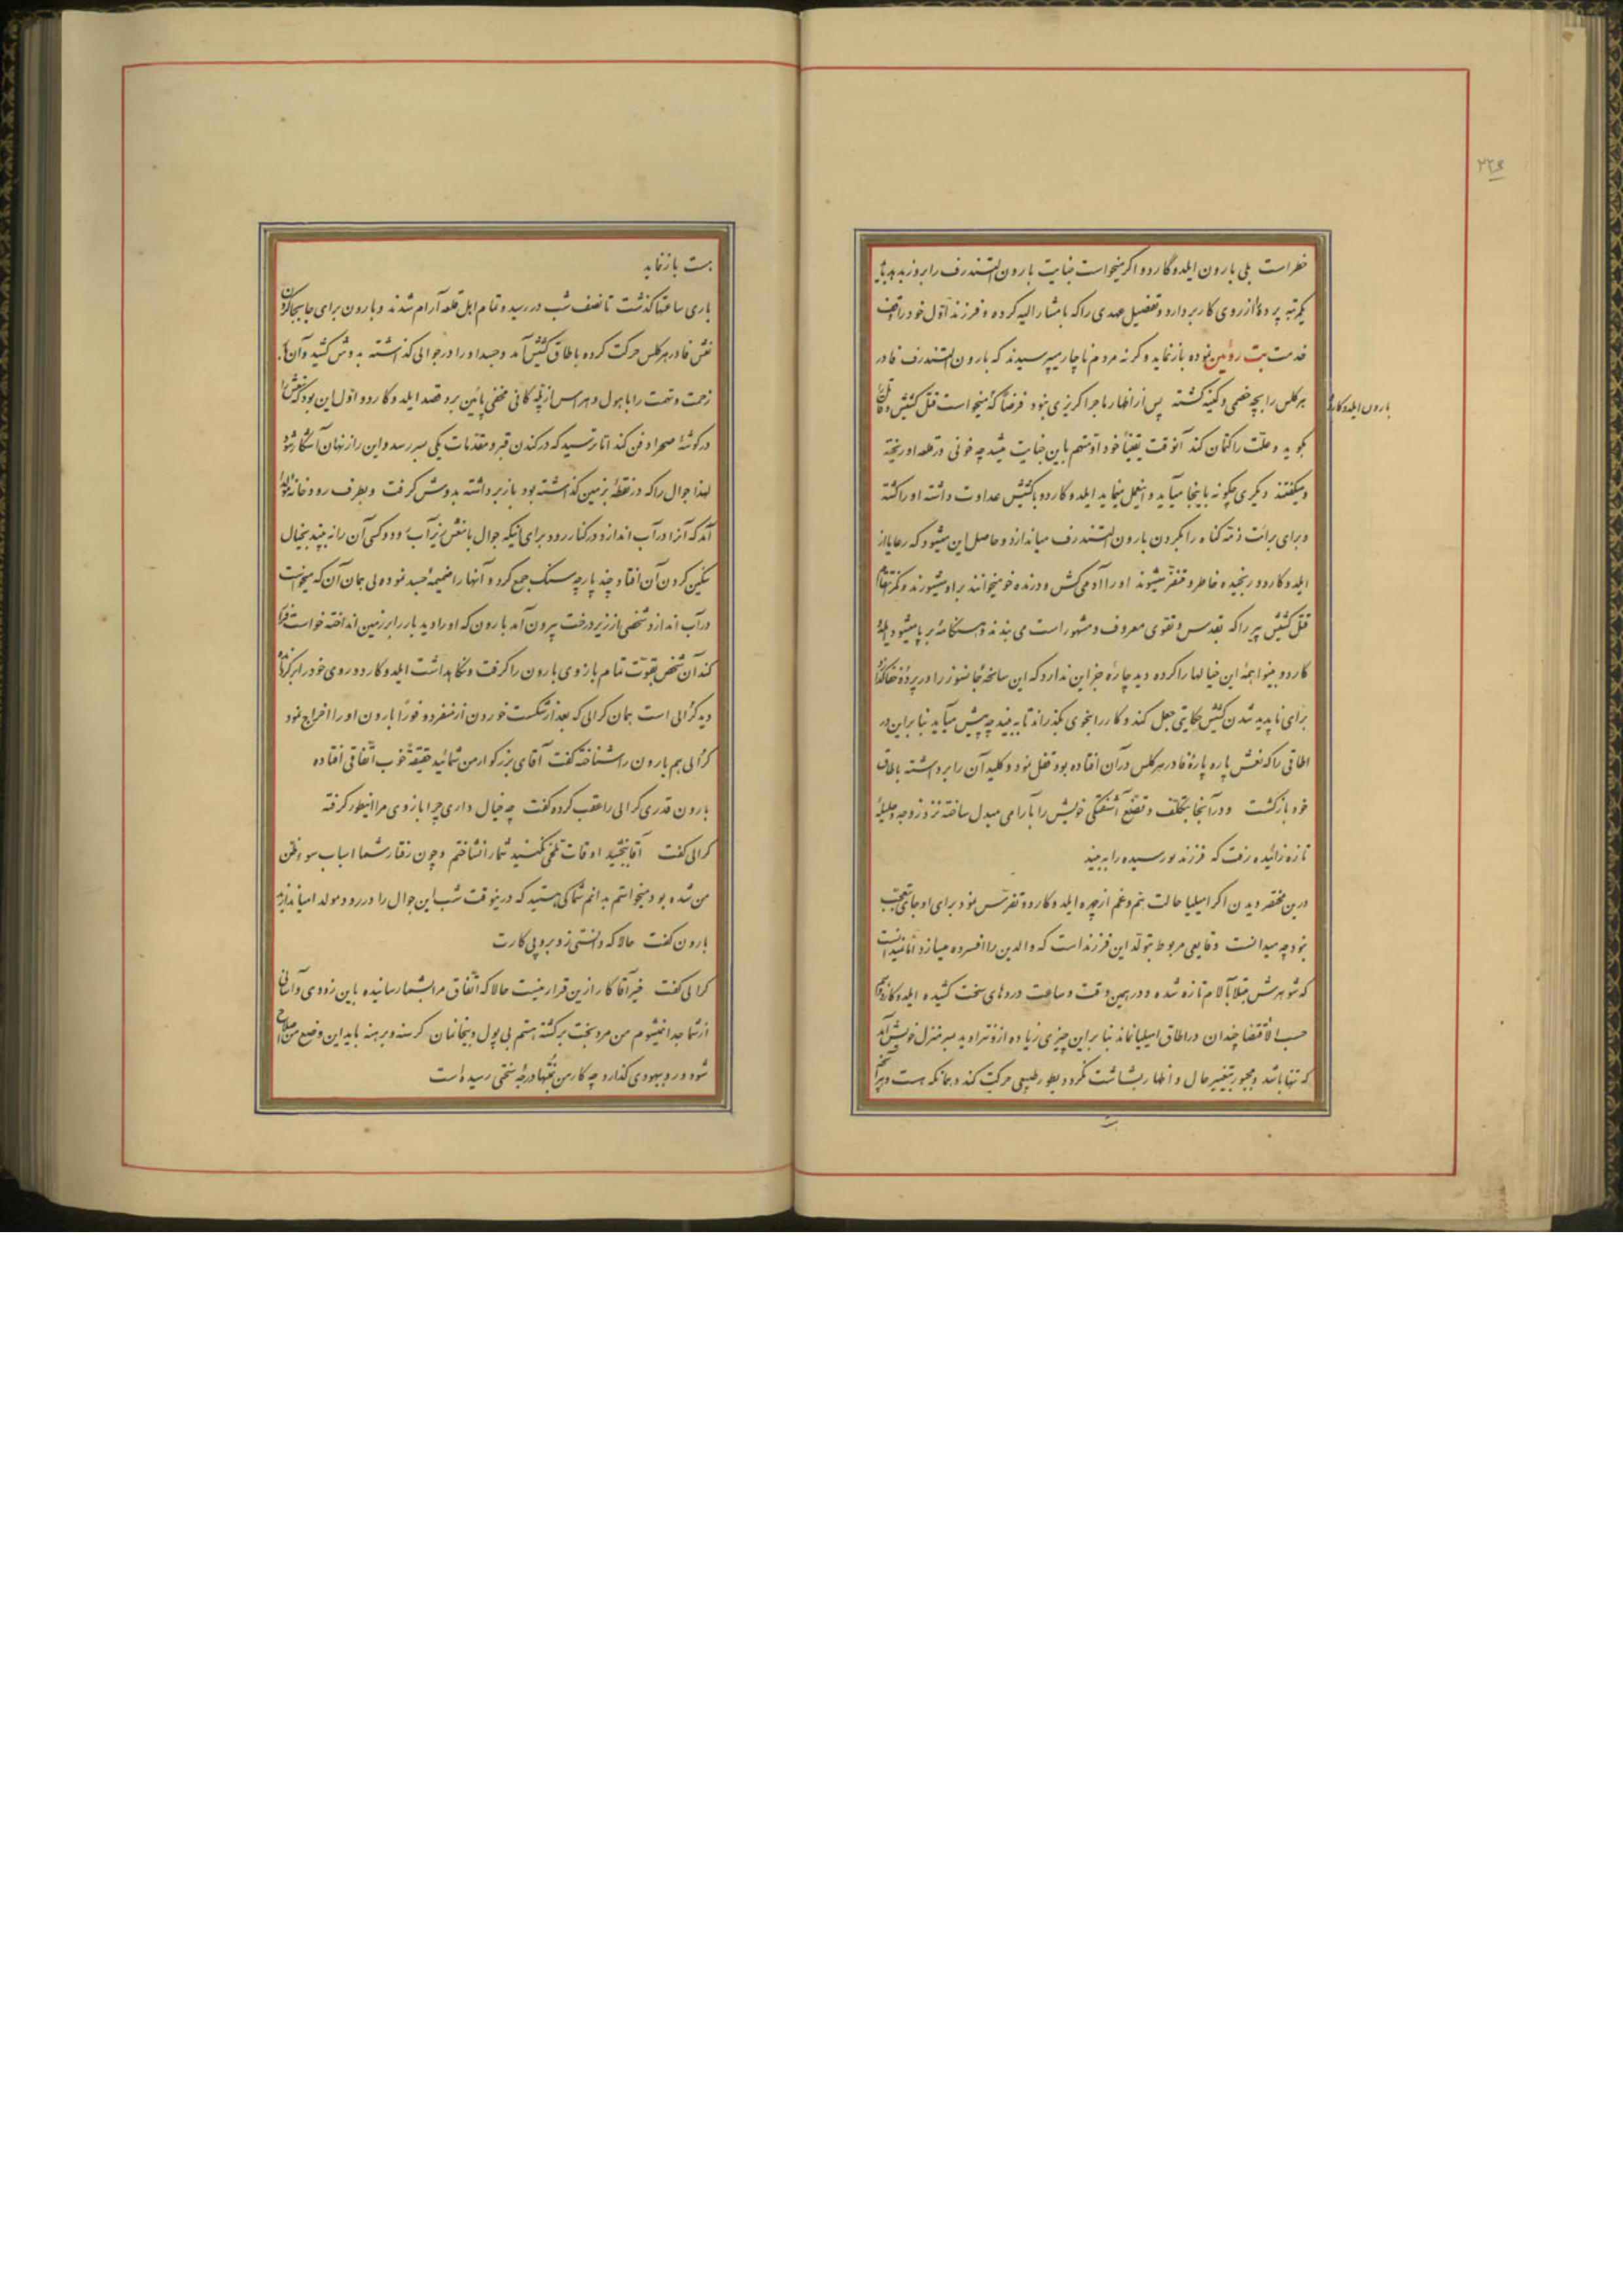 ۲۲۶
خطر است بلی بارون ایلدوگاردو اگر میخواست جنایت بارون التندرف را بروز بدهد باید
یکمرتبه پرده از روی کار بردارد و تفضیل عهدی را که با مشار الیه کرده و فرزند اول خود را وقف
خدمت بت روئین نموده باز نماید و گرنه مردم ناچار میپرسیدند که بارون التندرف فادر
هرکلس را بچه خصمی و کینه کشته پس از اظهار ماجرا گریزی نبود فرضاً که میخواست قتل کشیش و قاتل را
بارون ایلدوگاردو
بگوید و علت را کتمان کند آنوقت یقیناً خود او متهم باین جنایت میشد چه خونی در قلعه او ریخته
و میگفتند دیگری چگونه باینجا میآید و اینعمل مینماید ایلدوگاردو با کشیش عداوت داشته او را کشته
و برای برائت ذمه گناه را بگردن بارون التندرف میاندازد و حاصل این میشود که رعایا از
ایلدوگاردو رنجیده خاطر و متنفر میشوند او را آدمی کش و درنده خو میخوانند بر او میشورند و کمر بانتقام
قتل کشیش پیر را که بقدس و تقوی معروف و مشهور است می بندند و هنگامه بر پا میشود ایلدو
گاردو بینوا همۀ این خیالها را کرده دید چاره جز این ندارد که این سانحۀ جانسوز را در پردۀ خفا گذارد
برای ناپدید شدن کشیش حکایتی جعل کند و کار را بنحوی بگذراند تا به بیند چه پیش میآید بنا براین در
اطاقی را که نعش پاره پارۀ فادر هرکلس در آن افتاده بود قفل نمود و کلید آن را برداشته باطاق
خود بازگشت و در آنجا بتکلف و تصنع آشفتگی خویش را بآرامی مبدل ساخته نزد زوجه و حلیلۀ
تازه زائیده رفت که فرزند نو رسیده را به بیند
درین مختصر دیدن اگر امیلیا حالت هم و غم از چهره ایلدوگاردو تفرس نمود برای او جای تعجب
نبود چه میدانست وقایعی مربوط بتولد این فرزند است که والدین را افسرده میسازد اما نمیدانست
که شوهرش مبتلا بآلام تازه شده و در همین وقت و ساعت دردهای سخت کشیده ایلدوگاردو هم
حسب الاقتضا چندان در اطاق امیلیا نماند بنا براین چیزی زیاده از و نتراوید بسر منزل خویش آمد
که تنها باشد و مجبور بتغییر حال و اظهار بشاشت نگردد بطور طبیعی حرکت کند و چنانکه هست و چهرۀ
هست باز نماید
باری ساعتها گذشت تا نصف شب در رسید و تمام اهل قلعه آرام شدند و بارون برای جابجا کردن
نعش فادر هرکلس حرکت کرده باطاق کشیش آمد و جسد او را در جوالی گذاشته بدوش کشید و آن
زحمت و تهمت را با هول و هراس از پله کانی مخفی پائین برد قصد ایلدوگاردو اول این بود که نعش را
در گوشۀ صحرا دفن کند اما ترسید که در کندن قبر و مقدمات یکی سر رسد و این راز نهان آشکار شود
لهذا جوال را که در نقطۀ بزمین گذاشته بود باز برداشته بدوش گرفت و بطرف رودخانه
آمد که آنرا در آب اندازد در کنار رود برای اینکه جوال با نعش بزیر آب رود و کسی آن را نه بیند بخیال
سنگین کردن آن افتاد چند پارچه سنگ جمع کرد و آنها را ضمیمۀ جسد نمود ولی همان آن که میخواست
در آب اندازد شخصی از زیر درخت بیرون آمد بارون که او را دید بار را بر زمین انداخته خواست فرار
کند آن شخص بقوت تمام بازوی بارون را گرفت و نگاهداشت ایلدوگاردو روی خود را برگردانده
دید کرالی است همان کرالی که بعد از شکست خوردن از منفردو فوراً بارون او را اخراج نمود
کرالی هم بارون را شناخته گفت آقای بزرگوار من شمائید حقیقةً خوب اتفاقی افتاده
بارون قدری کرالی را عقب کرده گفت چه خیال داری چرا بازوی مرا اینطور گرفته
کرالی گفت آقا ببخشید اوقات تلخی نکنید شما را نشناختم و چون رفتار شما اسباب سوء ظن
من شده بود میخواستم بدانم شما کی هستید که درینوقت شب این جوال را در رود مولد امیاندازید
بارون گفت حالا که دانستی زود برو پی کارت
کرالی گفت خیر آقا کار ازین قرار نیست حالا که اتفاق مرا بشما رسانیده باین زودی و آسانی
از شما جدا نمیشوم من مرد بخت برگشته هستم بی پول و بیخانمان گرسنه و برهنه باید این وضع من اصلاح
شود و رو ببهبودی گذارد چه کار من بمنتها درجۀ سختی رسیده است